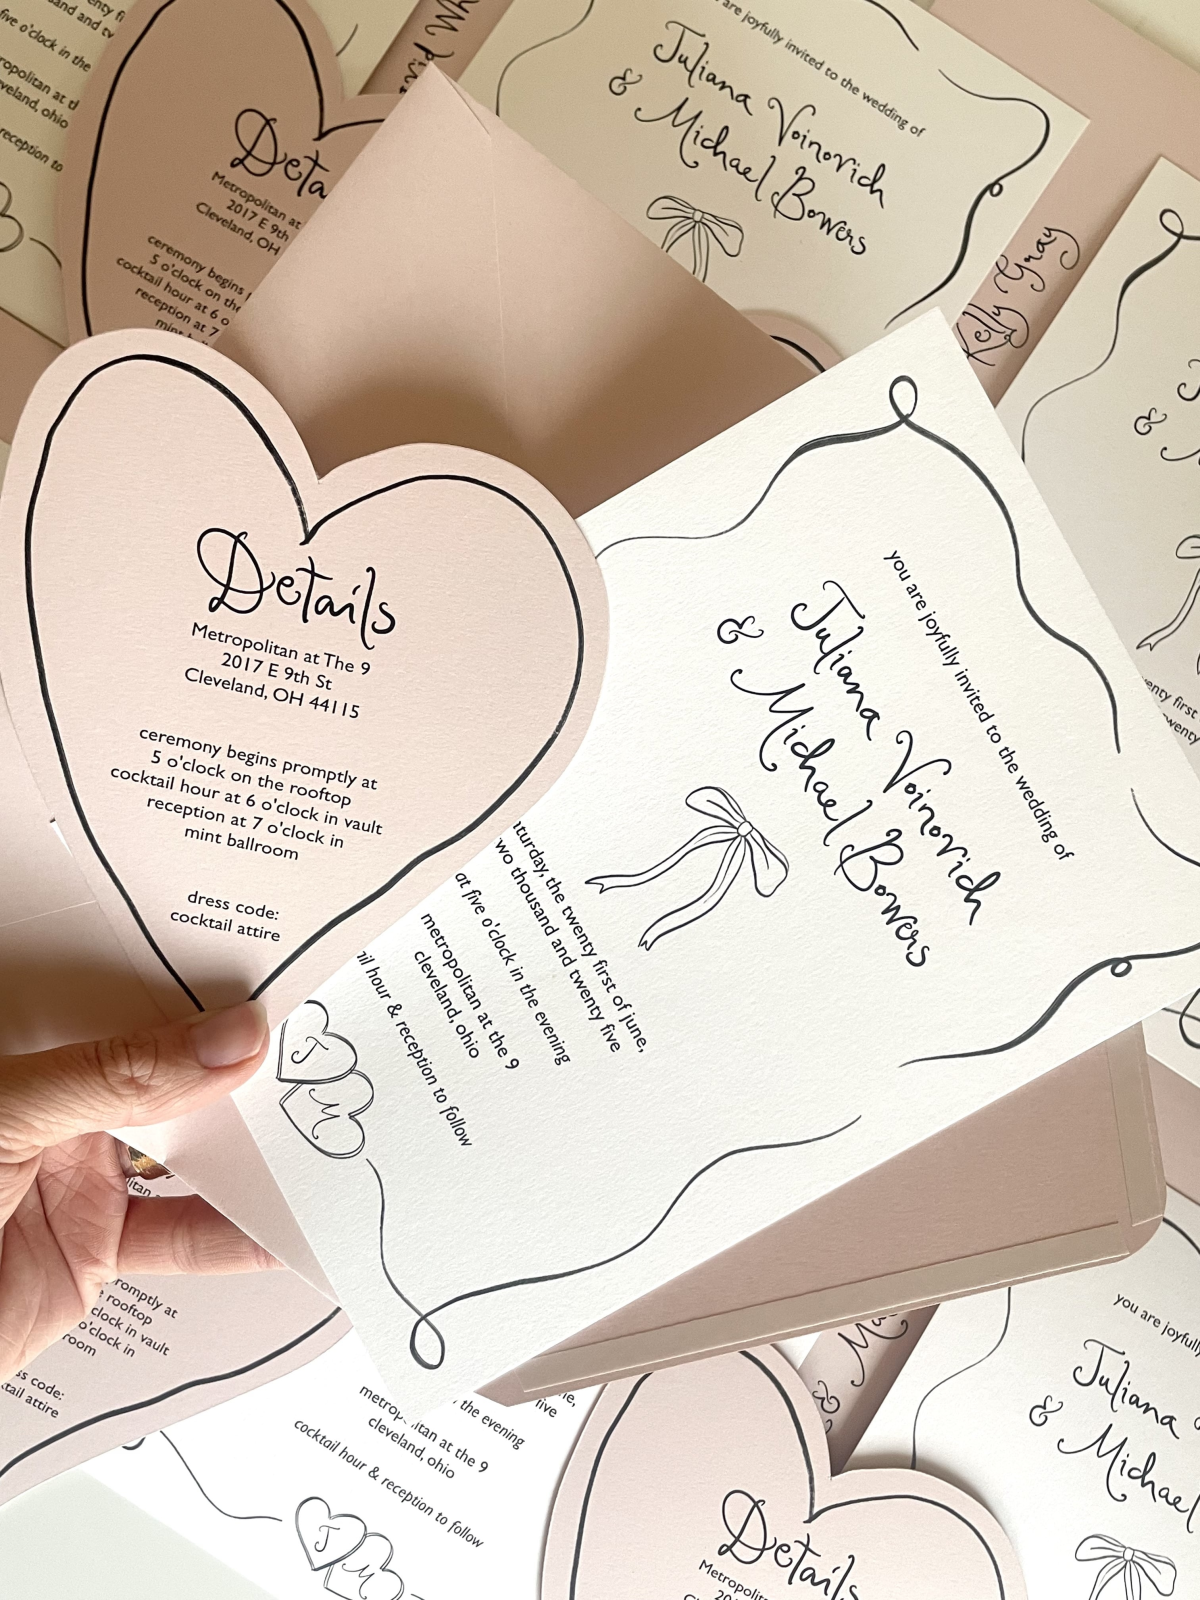 Details
Metropolitan at The 9
2017 E 9th St
Cleveland, OH 44115
ceremony begins promptly at
5 o'clock on the rooftop
cocktail hour at 6 o'clock in vault
reception at 7 o'clock in
mint ballroom
dress code:
cocktail attire
you are joyfully invited to the wedding of
Juliana Voinovich
& Michael Bowers
the twenty first of june,
two thousand and twenty five
at five o'clock in the evening
metropolitan at the 9
cleveland, ohio
hour & reception to follow
J
M
five o'clock in the
reception to
Metropolitan at
2017 E 9th
Cleveland, OH
ceremony begins
5 o'clock on the
cocktail hour at 6
reception at 7
are joyfully invited to the wedding of
Juliana Voinovich
& Michael Bowers
Kelly Gray
&
first
promptly at
rooftop
in vault
o'clock in
code:
attire
the evening
five
at the 9
cleveland, ohio
cocktail hour & reception to follow
J
M
Details
you are joyfully
Juliana
& Michael